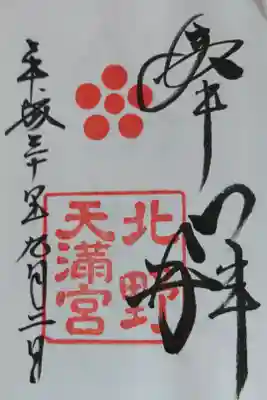 奉拝
北野
天満宮
平成三十年九月二日